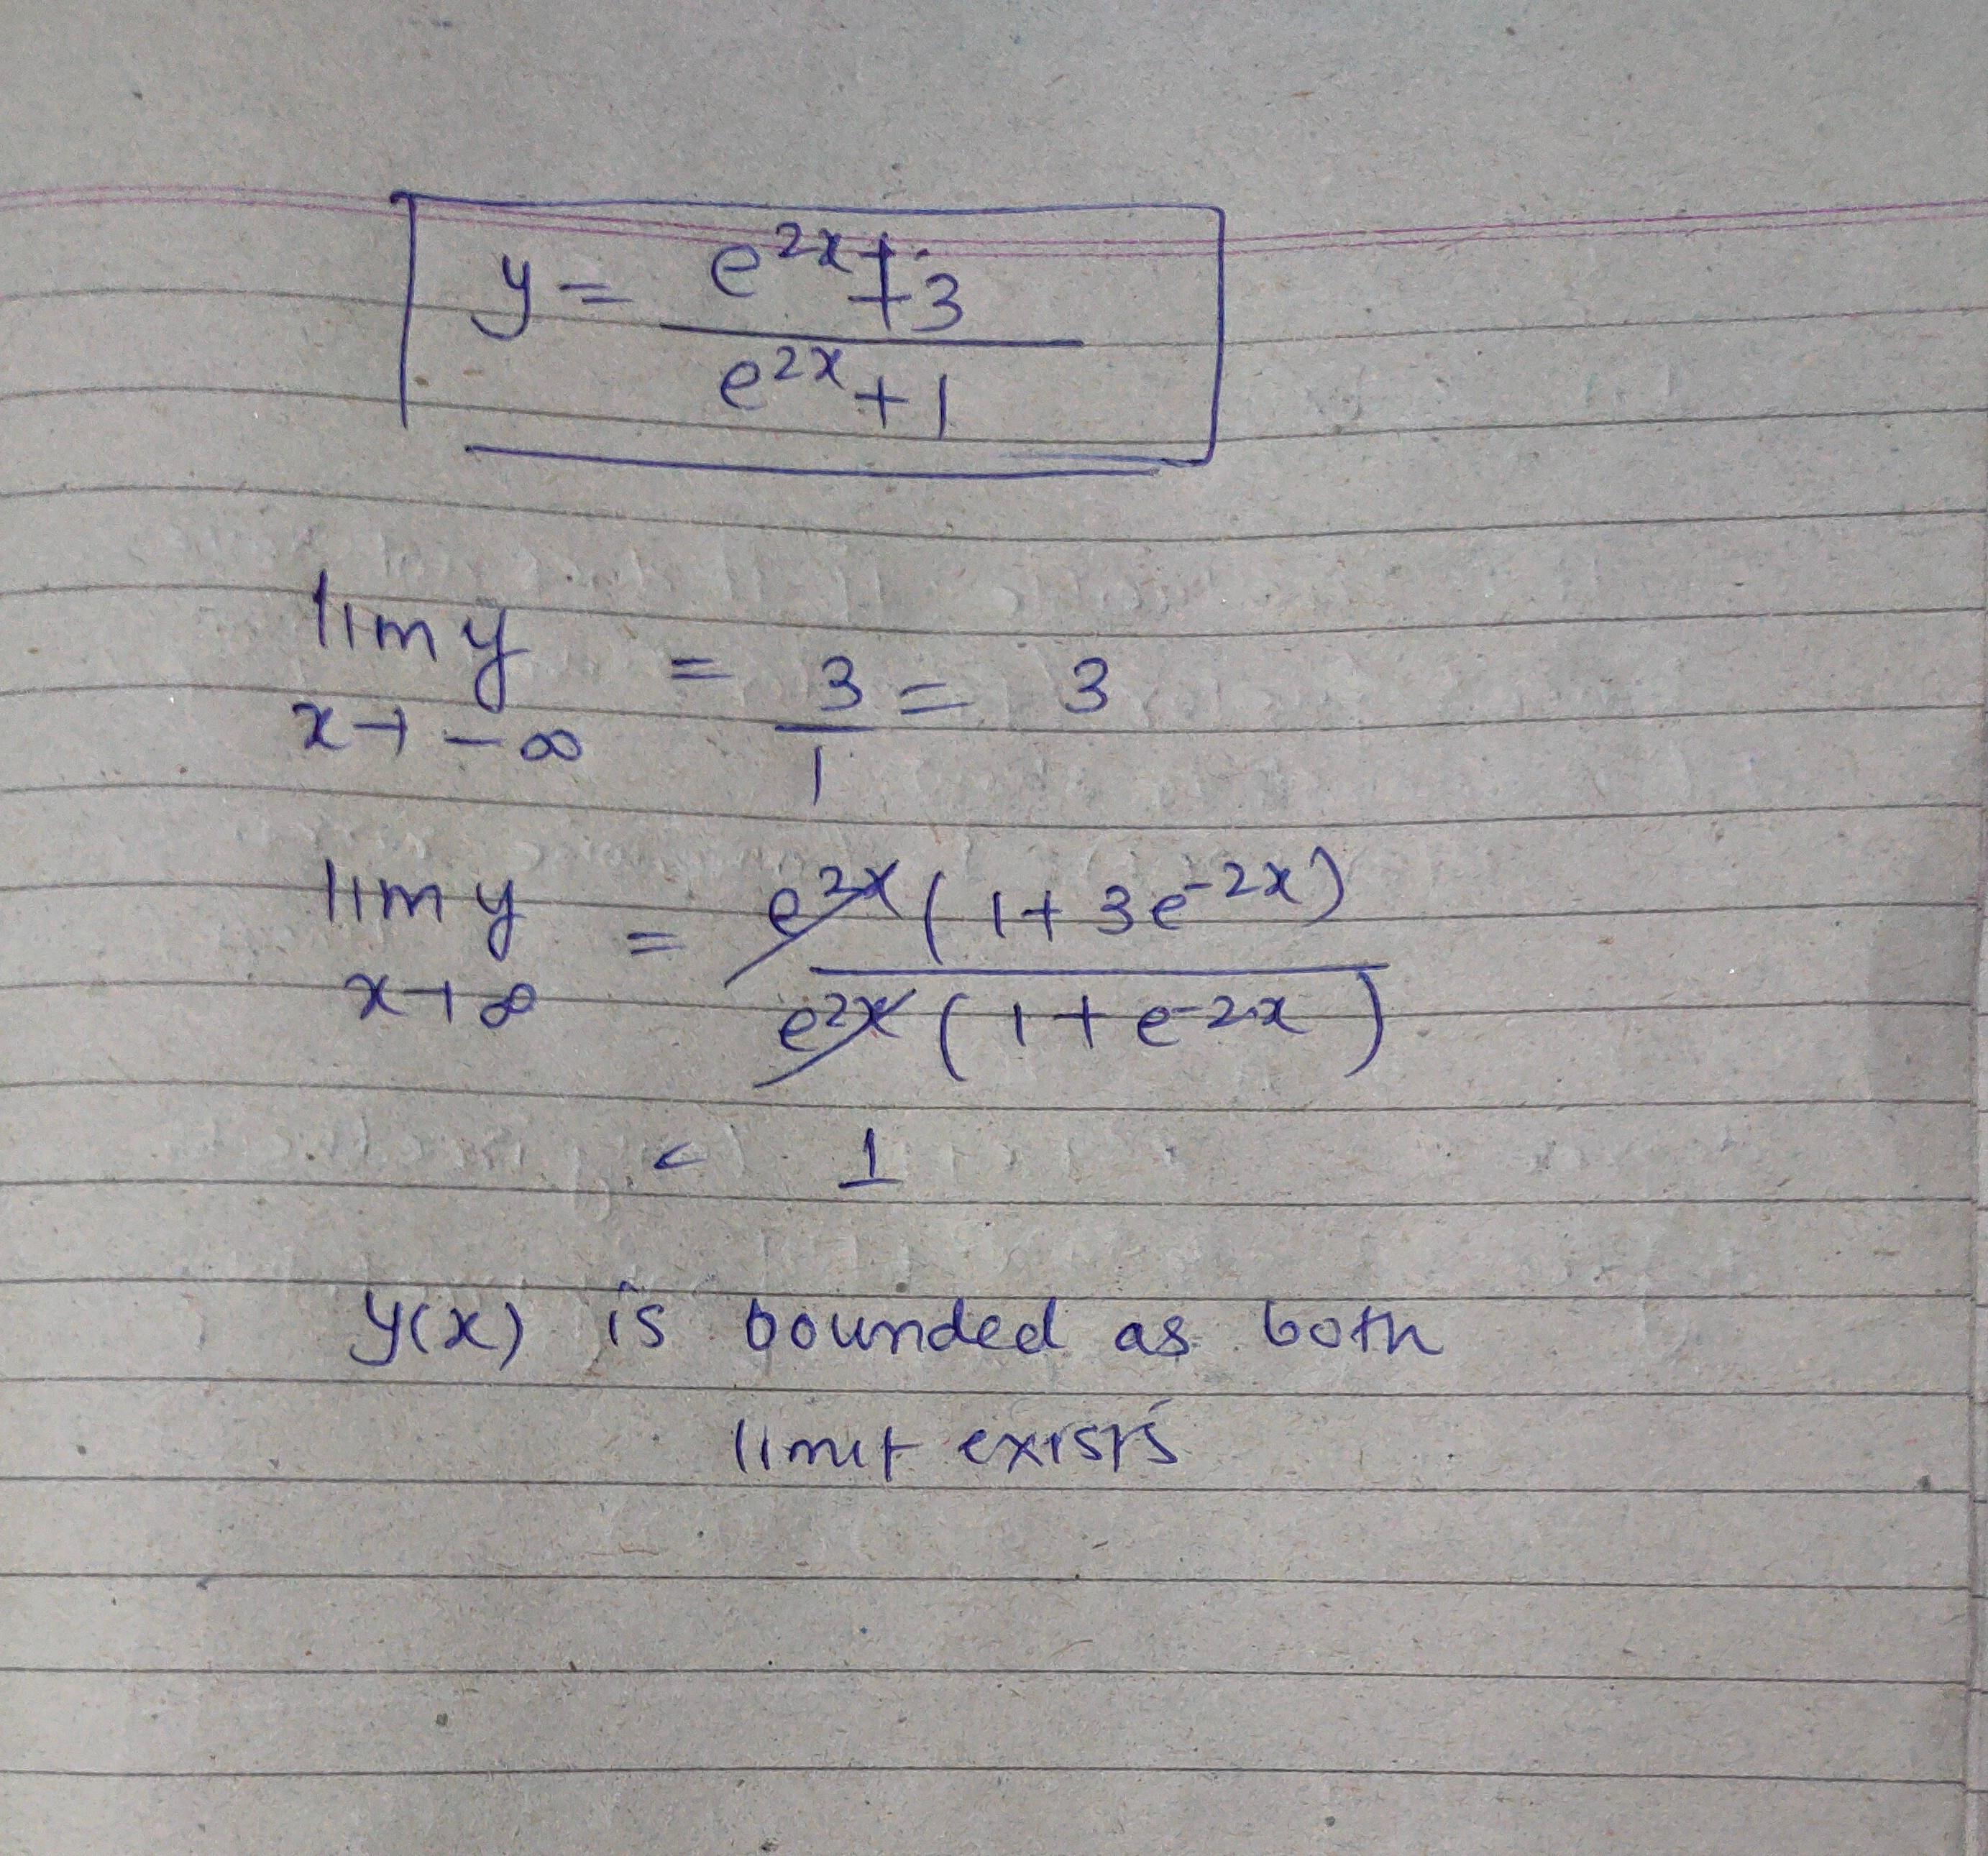 y = e^{2x} + 3
e^{2x} + 1
lim y = 3 = 3
x → -∞ 1
lim y = e^{2x} ( 1 + 3e^{-2x} )
x → ∞ e^{2x} ( 1 + e^{-2x} )
= 1
y(x) is bounded as both
limit exists